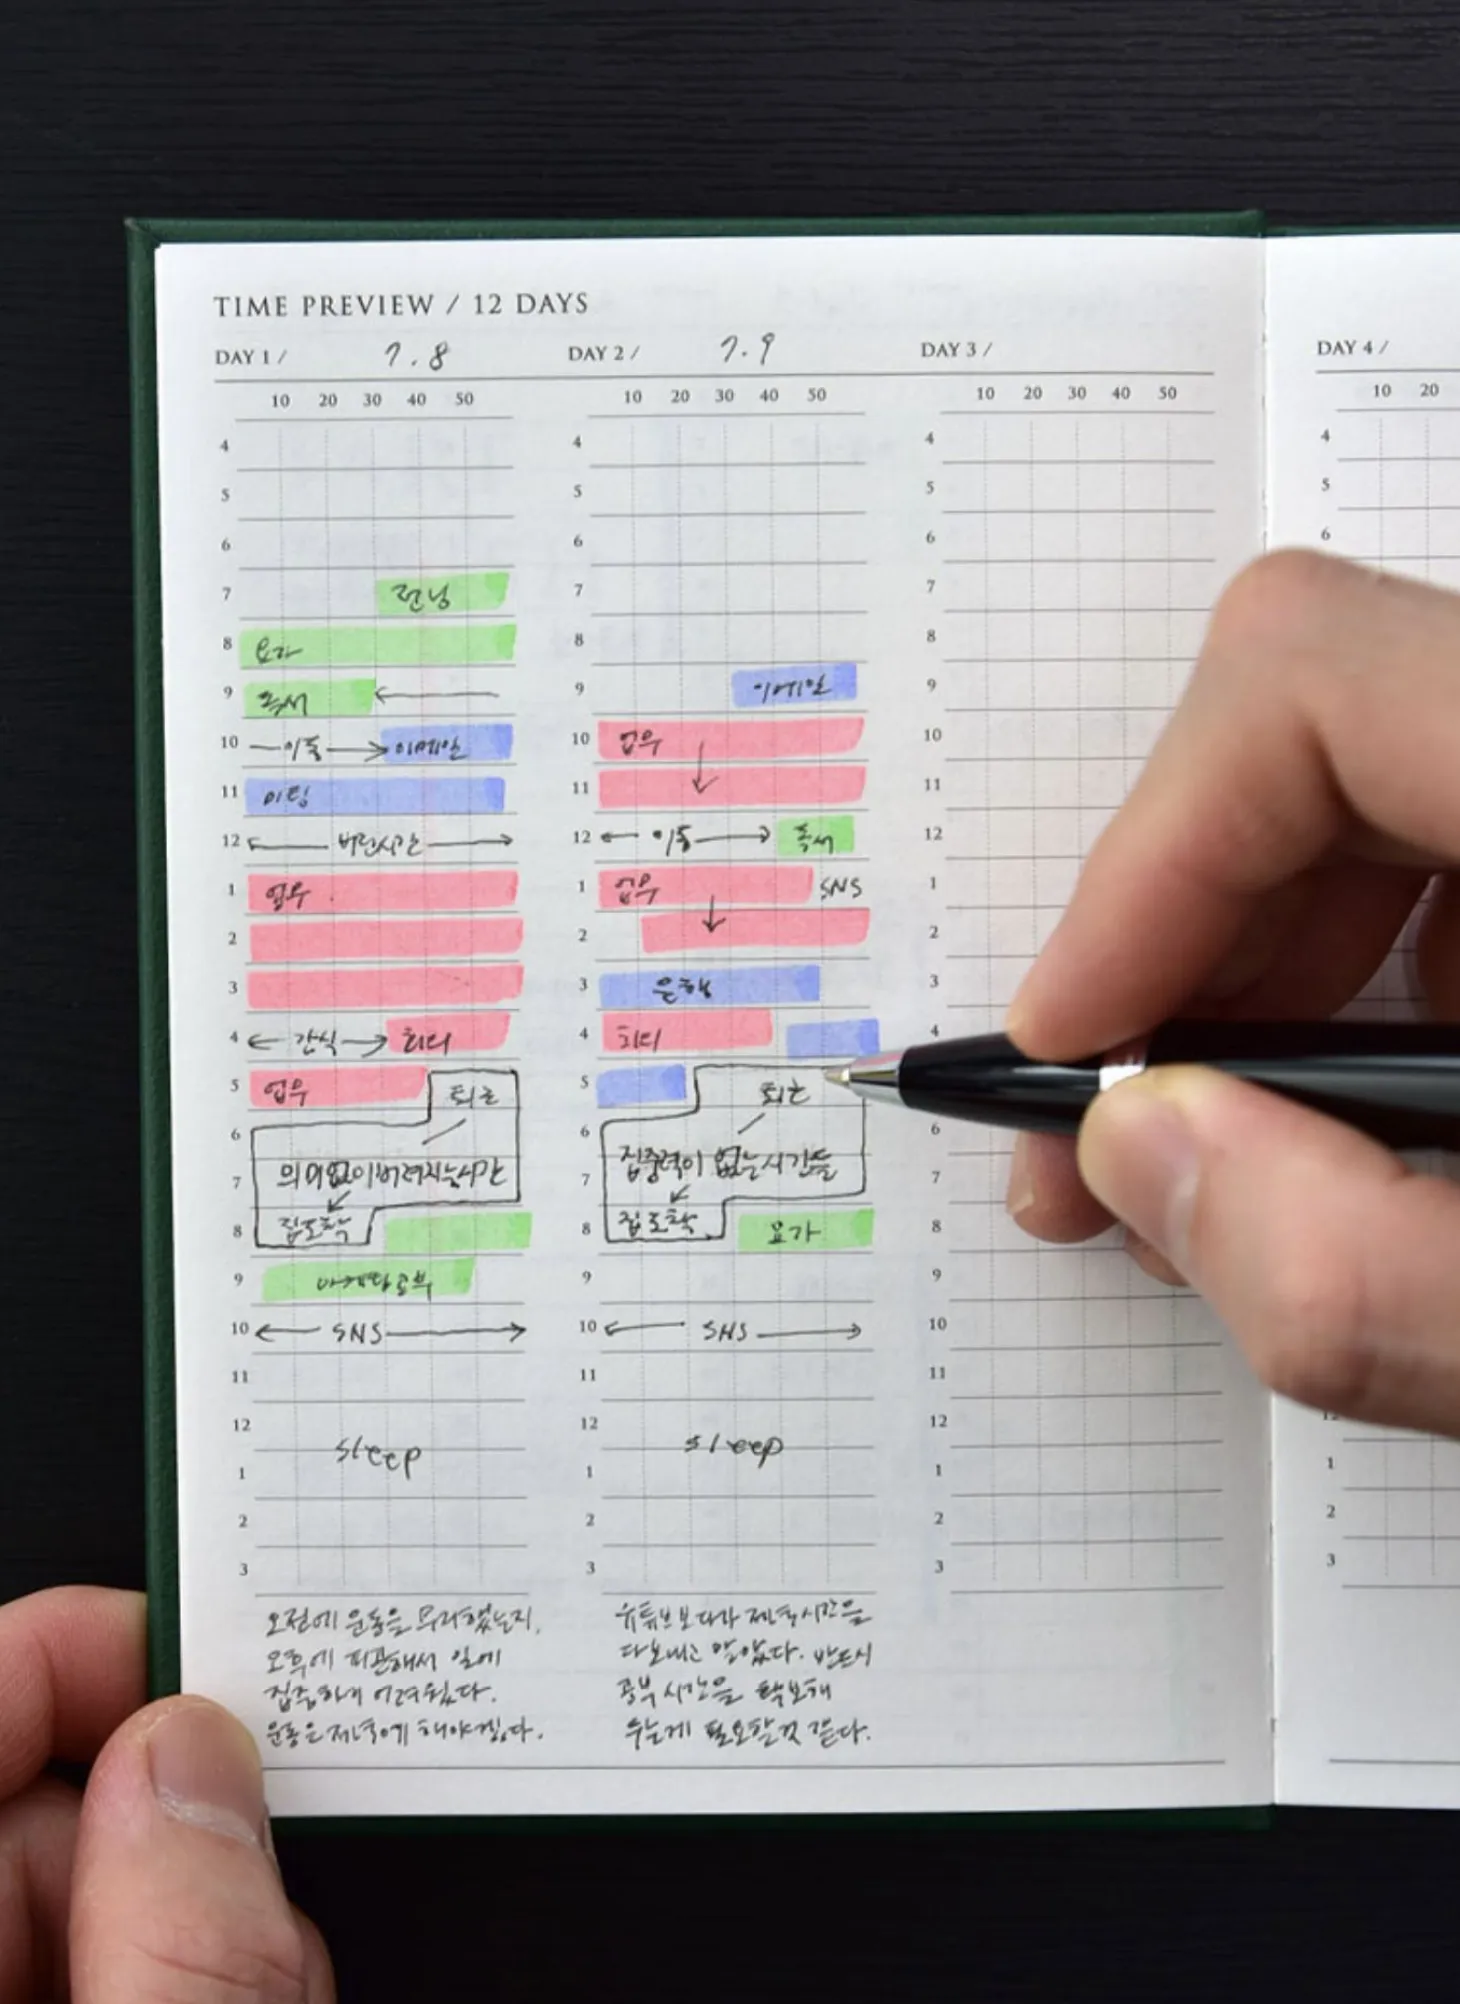 TIME PREVIEW / 12 DAYS
DAY 1 / 7.8
DAY 2 / 7.9
DAY 3 /
DAY 4 /
10 20 30 40 50
10 20 30 40 50
10 20 30 40 50
10 20
4
5
6
7 런닝
8 요가
9 독서
10 이동 이메일
11 미팅
12 버린시간
1 업무
2
3
4 간식 회의
5 업무 퇴근
6
7 의미없이 버려지는 시간
8 집도착
9 마케팅공부
10 SNS
11
12 sleep
1
2
3
오전에 운동을 무리했는지,
오후에 피곤해서 일에
집중하기 어려웠다.
운동은 저녁에 해야겠다.
4
5
6
7
8
9 이메일
10 업무
11
12 이동 독서
1 업무 SNS
2
3 은행
4 회의
5 퇴근
6
7 집중력이 없는 시간들
8 집도착 요가
9
10 SNS
11
12 sleep
1
2
3
유튜브 보다가 저녁시간을
다 보내고 말았다. 반드시
공부 시간을 확보해
두는게 필요할것 같다.
4
5
6
7
8
9
10
11
12
1
2
3
4
6
7
8
9
10
11
12
1
2
3
4
5
6
1
2
3